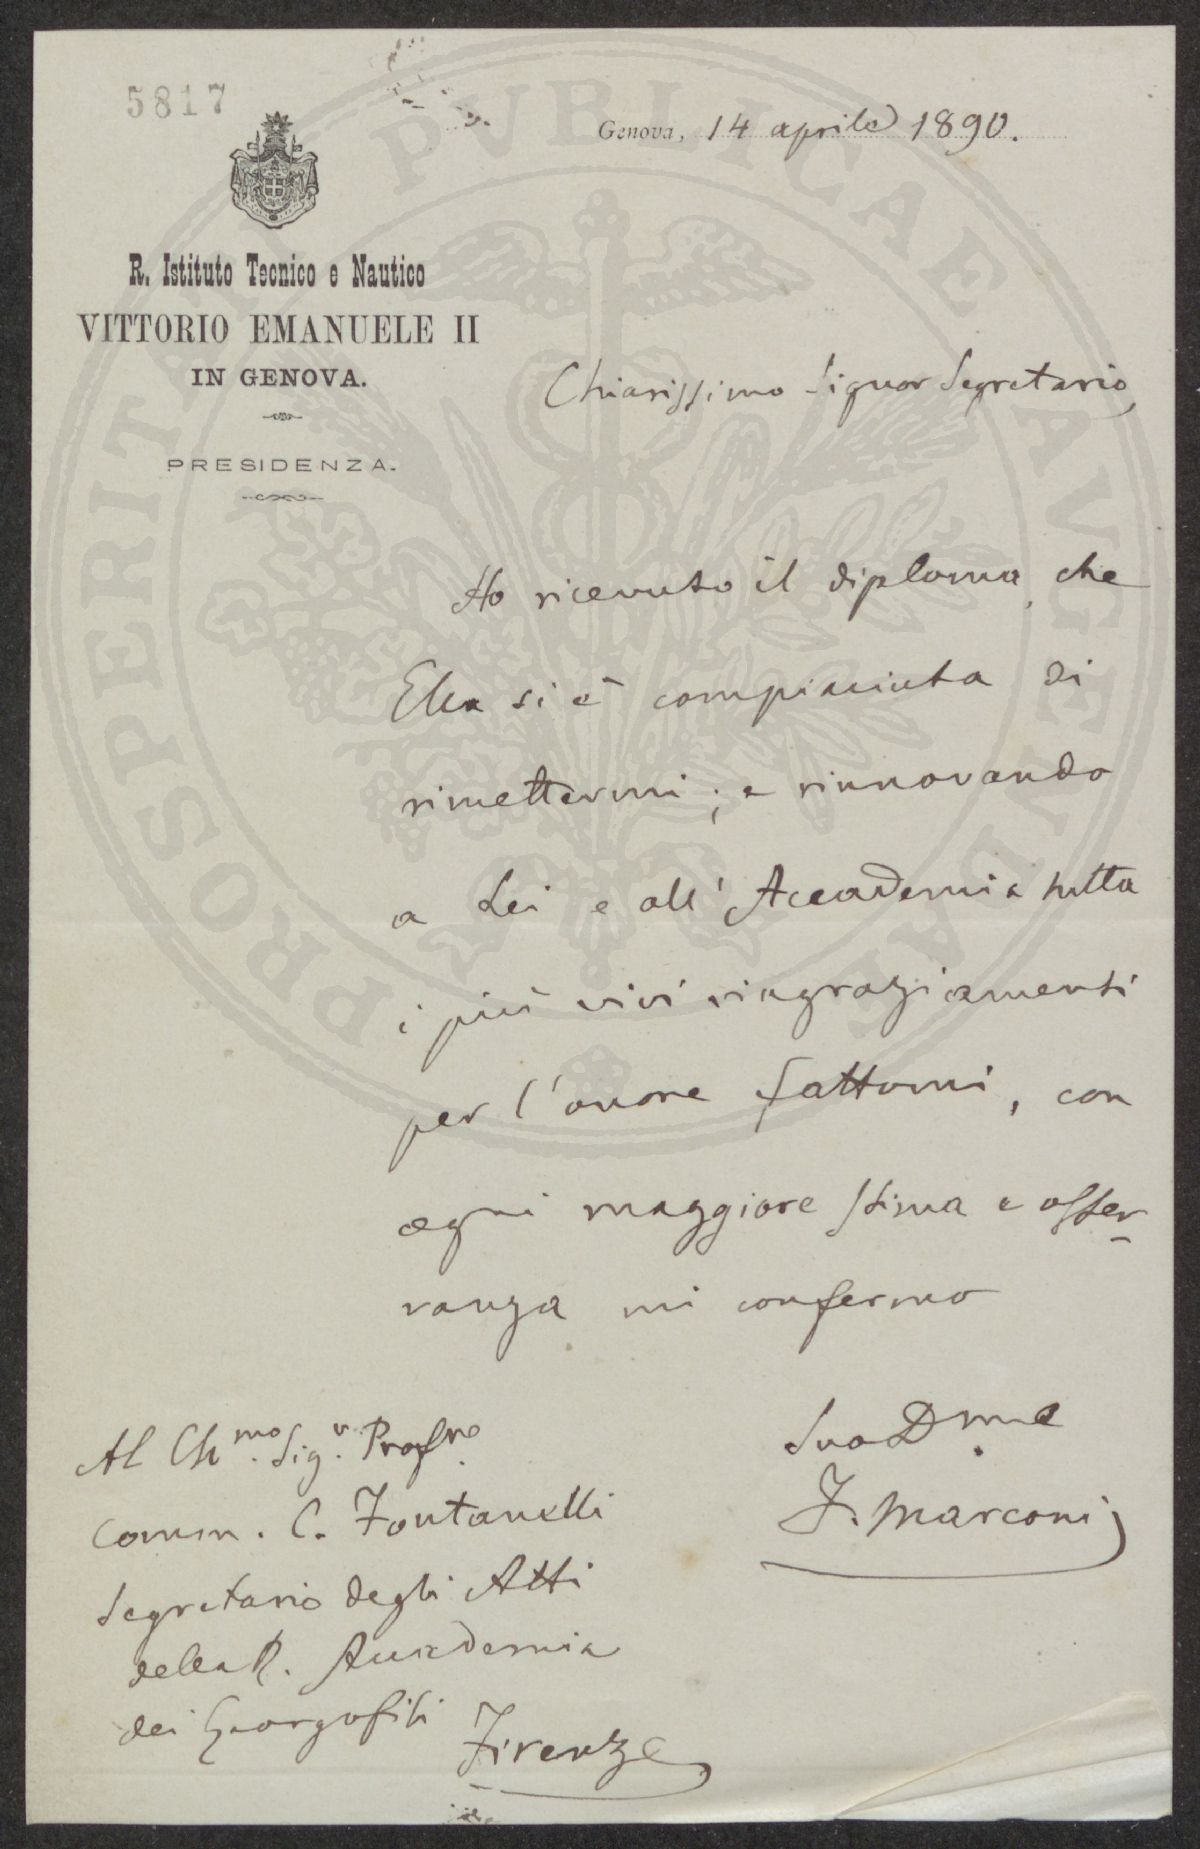 5817
Genova, 14 aprile 1890.
R. Istituto Tecnico e Nautico
VITTORIO EMANUELE II
IN GENOVA.
PRESIDENZA.
Chiarissimo Signor Segretario,
Ho ricevuto il diploma, che
Ella si è compiaciuta di
rimettermi; e rinnovando
a Lei e all'Accademia tutta
i più vivi ringraziamenti
per l'onore fattomi, con
ogni maggiore stima e osser-
vanza mi confermo
Suo D.mo
F. Marconi
Al Ch.mo Sig.r Profre
Comm. C. Fontanelli
Segretario degli Atti
della R. Accademia
dei Georgofili
Firenze
PROSPERITATI PVBLICAE AVGENDAE